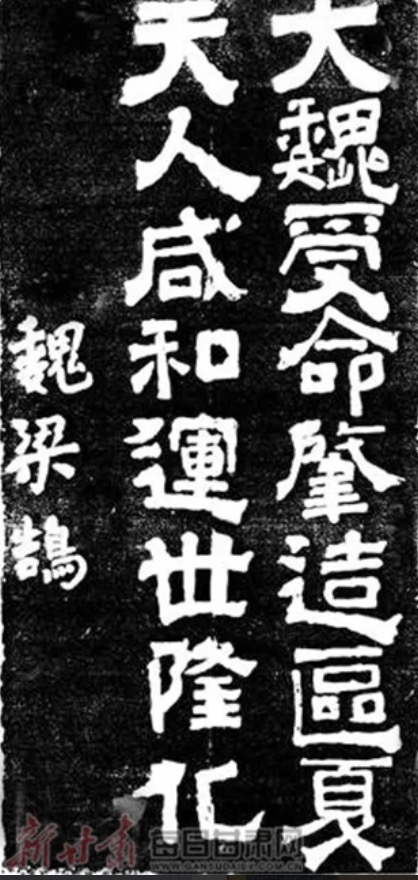 大魏受命肇造區夏
天人咸和運世隆化
魏梁鵠
新甘肃 每日甘肃网
WWW.GANSUDAILY.COM.CN